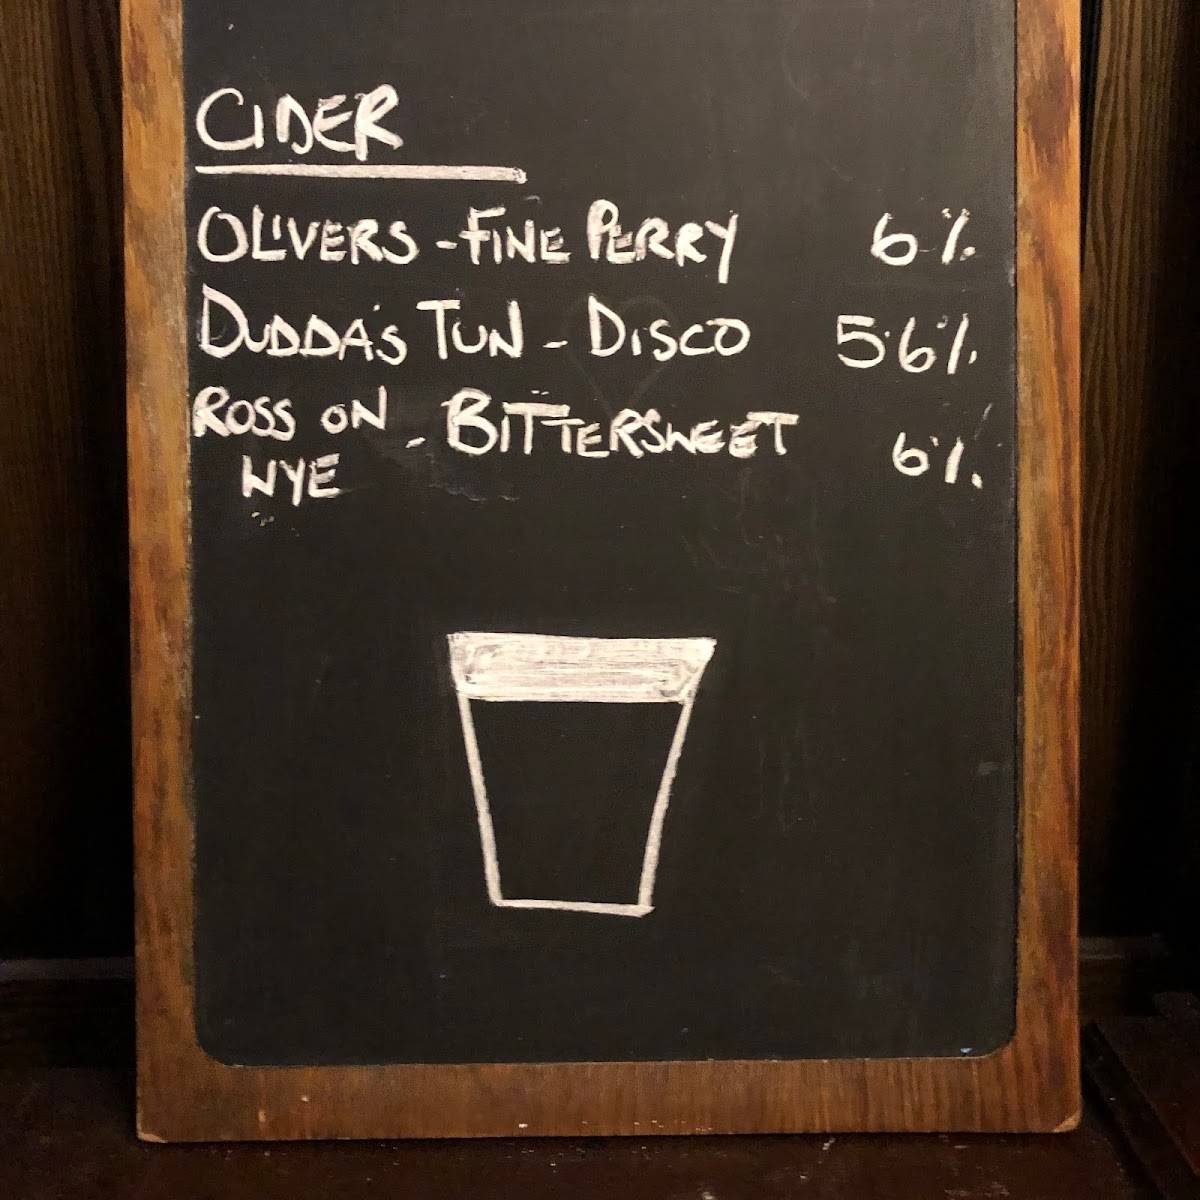 CIDER
OLIVERS - FINE PERRY 6%
DUDDA'S TUN - DISCO 5.6%
ROSS ON - BITTERSWEET 6%
WYE